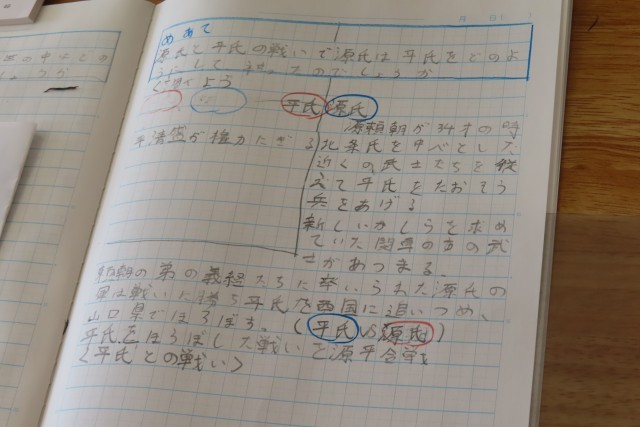 月 日( )
めあて
源氏と平氏の戦いで源氏は平氏をどのよ
うにして
調べよう
平氏 源氏
平清盛が権力にぎる
源頼朝が34才の時
北条氏を中べとした
近くの武士たちを従
えて平氏をたおそう
兵をあげる
新しいかしらを求め
ていた関東のあの武
士があつまる、
頼朝の弟の義経たちに率いられた源氏の
軍は戦いに勝ち平氏を西国に追いつめ、
山口県でほろぼす。(平氏VS源氏)
平氏をほろぼした戦いで源平合戦
(平氏との戦い)